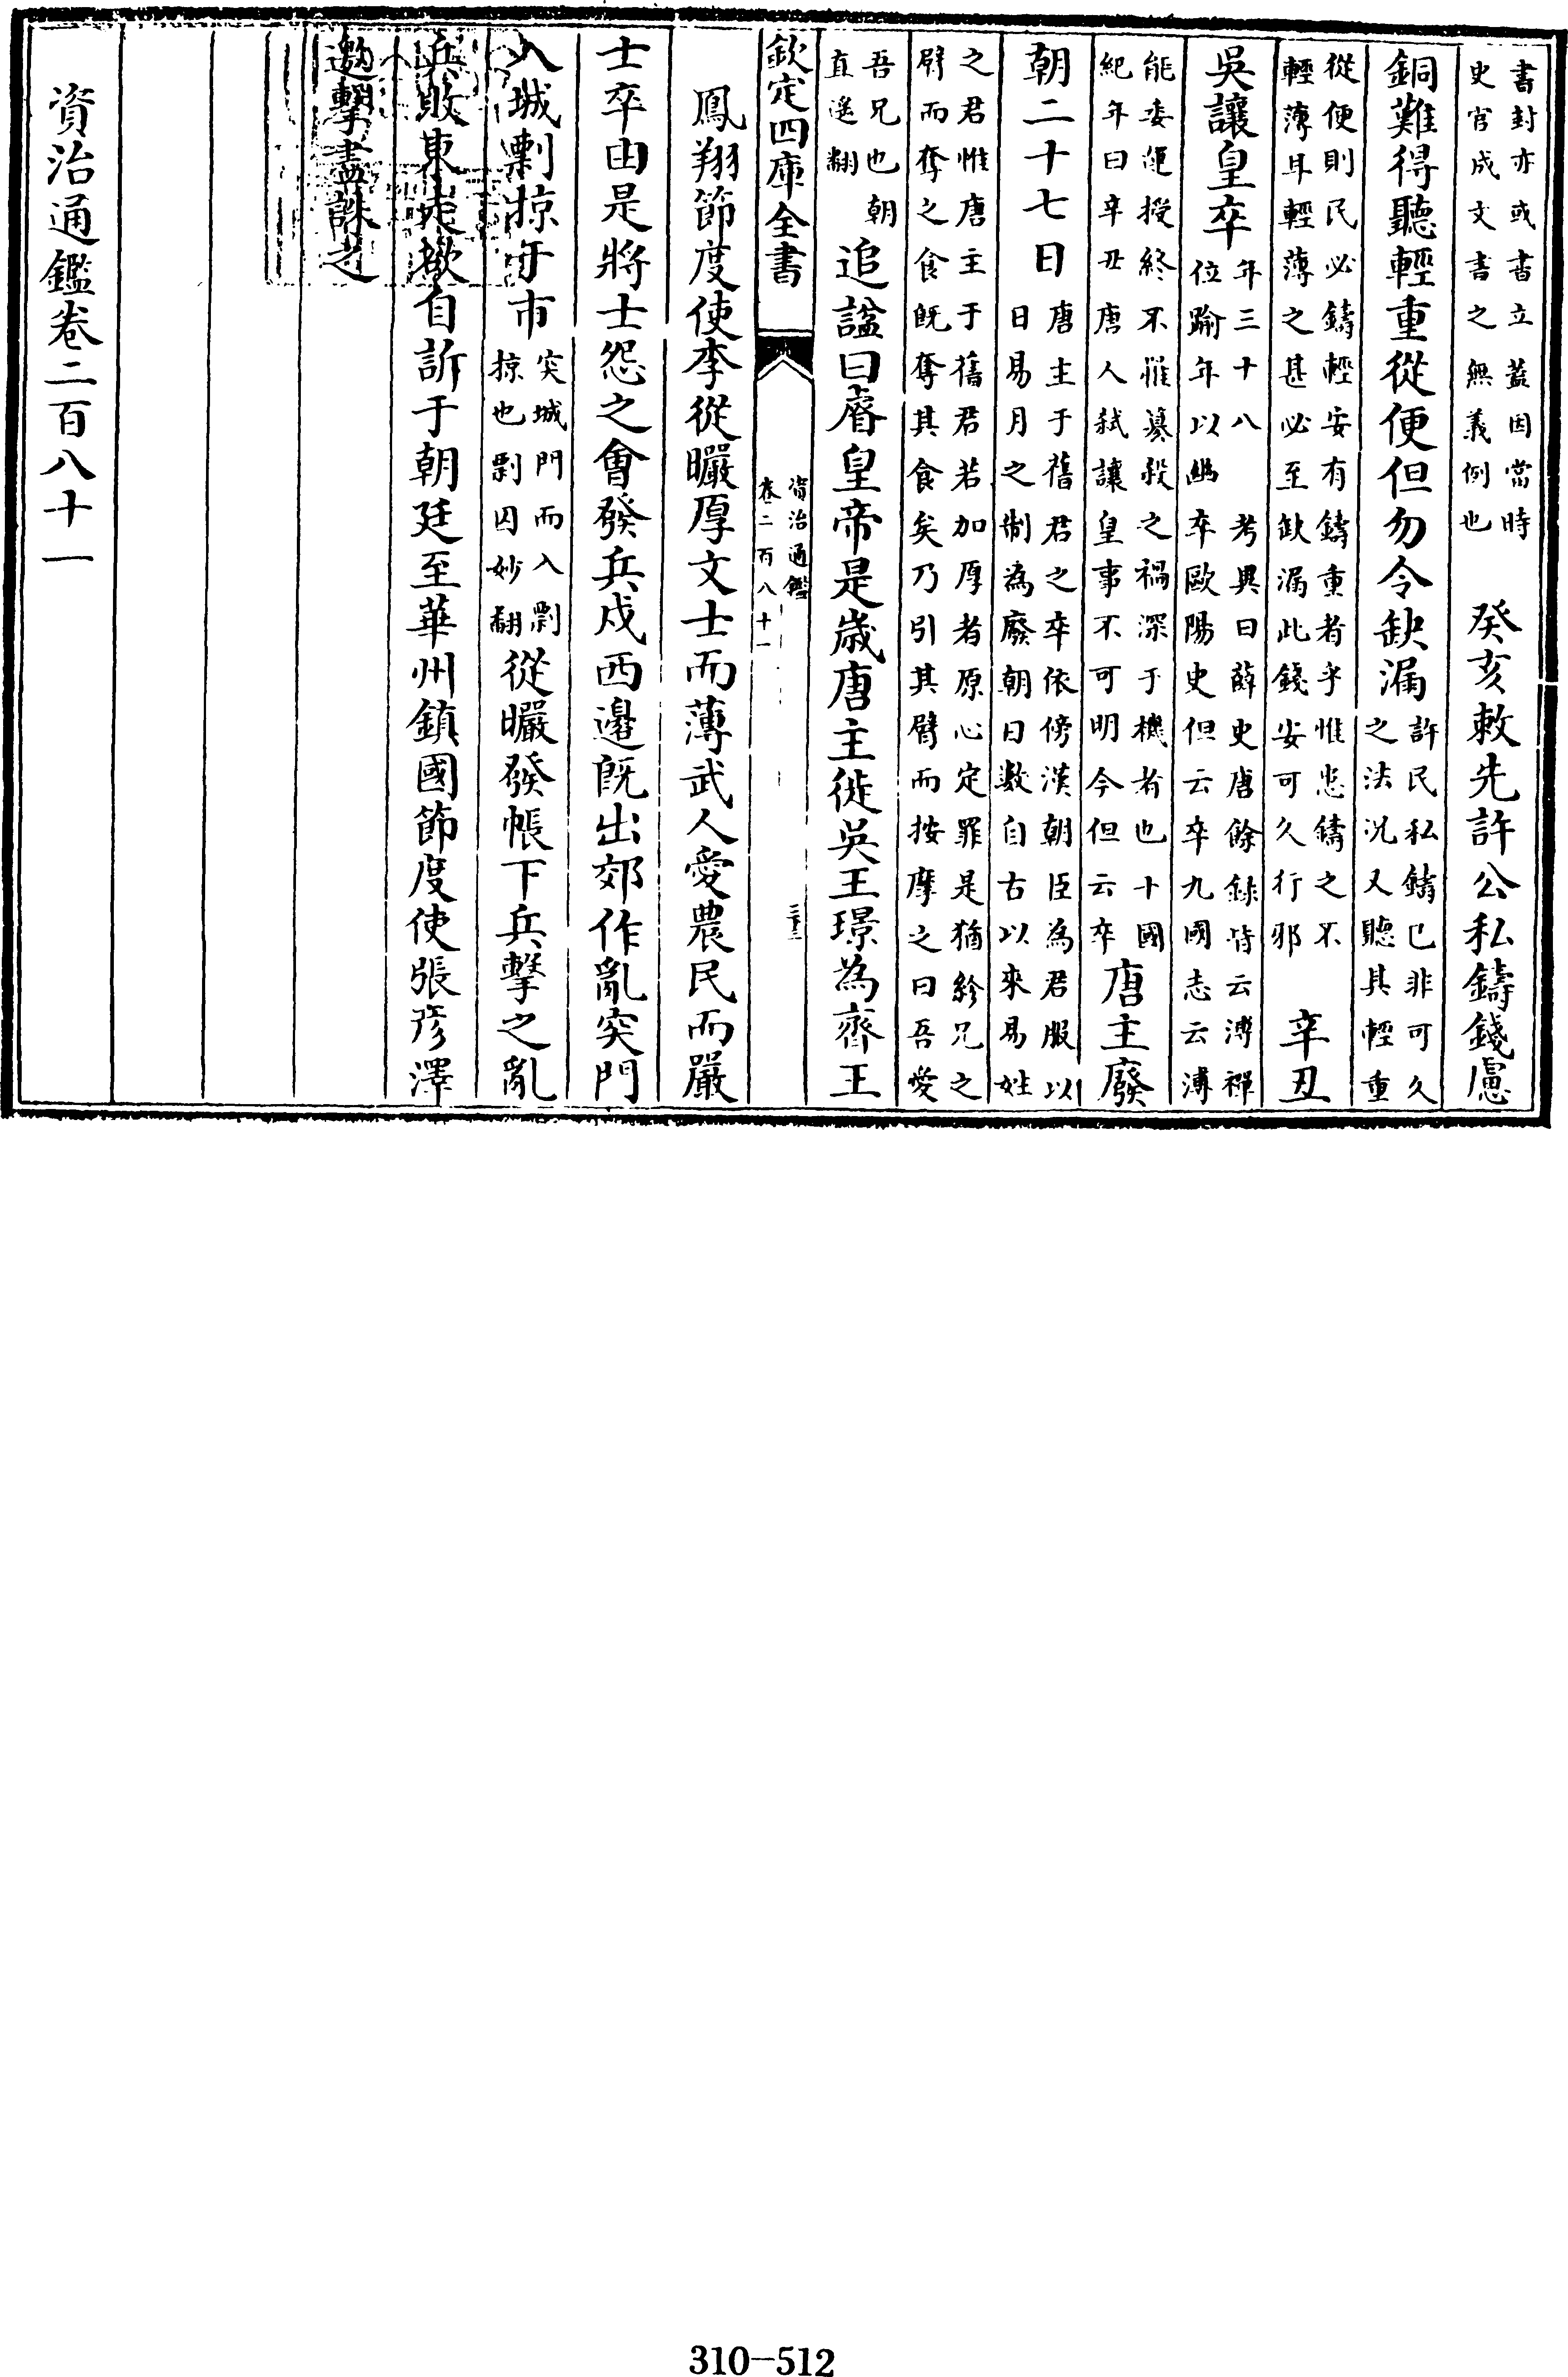 書封亦或書立蓋因當時史官成文書之無義例也　癸亥敕先許公私鑄錢慮
銅難得聽輕重從便但勿令缺漏許民私鑄已非可久之法况又聽其輕重
從便則民必鑄輕安有鑄重者乎惟患鑄之不輕薄耳輕薄之甚必至缺漏此錢安可久行邪　辛丑
吳讓皇卒年三十八位踰年以幽卒考異曰薛史唐餘録皆云溥禪歐陽史但云卒九國志云溥
能委運授終不罹簒殺之禍深于機者也十國紀年曰辛丑唐人弑讓皇事不可明今但云卒唐主廢
朝二十七日唐主于舊君之卒依傍漢朝臣為君服以日易月之制為廢朝日數自古以來易姓
之君惟唐主于舊君若加厚者原心定罪是猶紾兄之臂而奪之食既奪其食矣乃引其臂而按摩之曰吾愛
吾兄也朝直遥翻追諡曰睿皇帝是歲唐主徙吳王璟為齊王
欽定四庫全書
資治通鑑
卷二百八十一
三十三
鳳翔節度使李從曮厚文士而薄武人愛農民而嚴
士卒由是將士怨之會發兵戍西邉既出郊作亂突門
入城剽掠于市突城門而入剽掠也剽囚妙翻從曮發帳下兵擊之亂
兵敗東走欲自訴于朝廷至華州鎮國節度使張彦澤
邀擊盡誅之
資治通鑑卷二百八十一
310-512